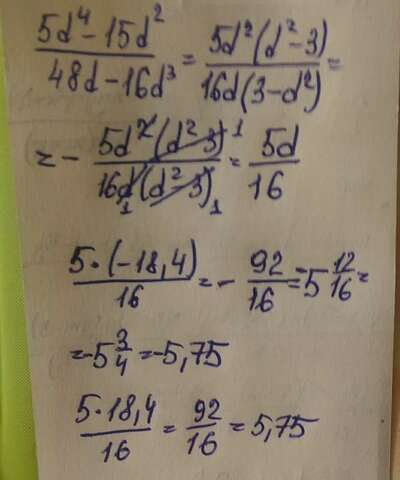 5d⁴-15d²/48d-16d³ = 5d²(d²-3)/16d(3-d²) =
= - 5d²(d²-3)¹/16d₁(d²-3)₁ = 5d/16
5·(-18,4)/16 = - 92/16 = -5 12/16 =
= -5 3/4 = -5,75
5·18,4/16 = 92/16 = 5,75